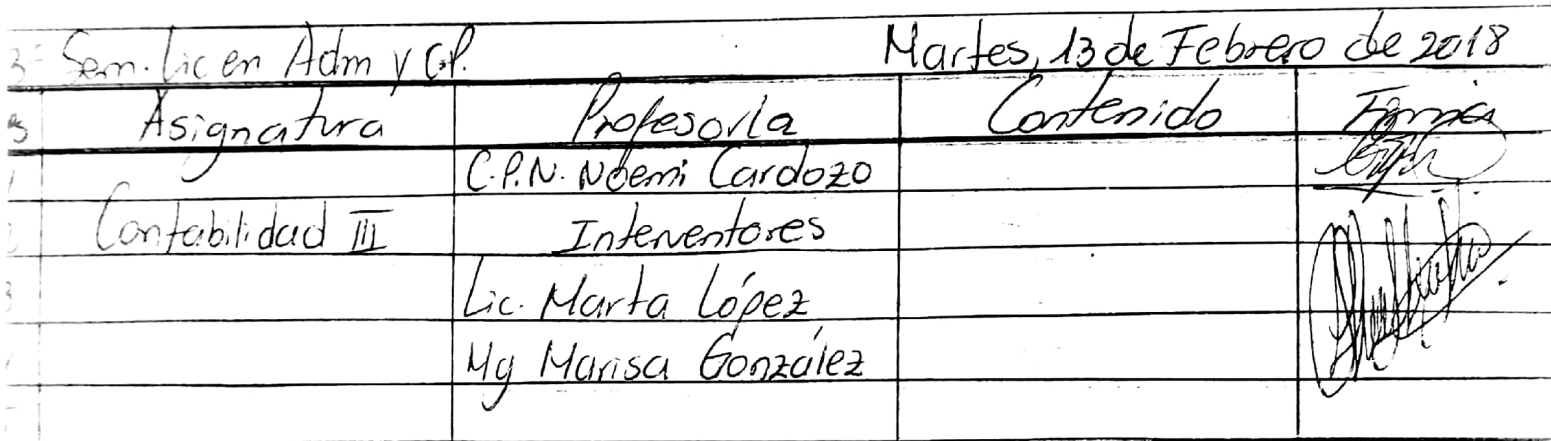 3º Sem. Lic en Adm y G.P. Martes, 13 de Febrero de 2018
Asignatura Profesor/a Contenido Firma
C.P.N. Noemi Cardozo
Contabilidad III Interventores
Lic. Marta López
Mg Marisa González